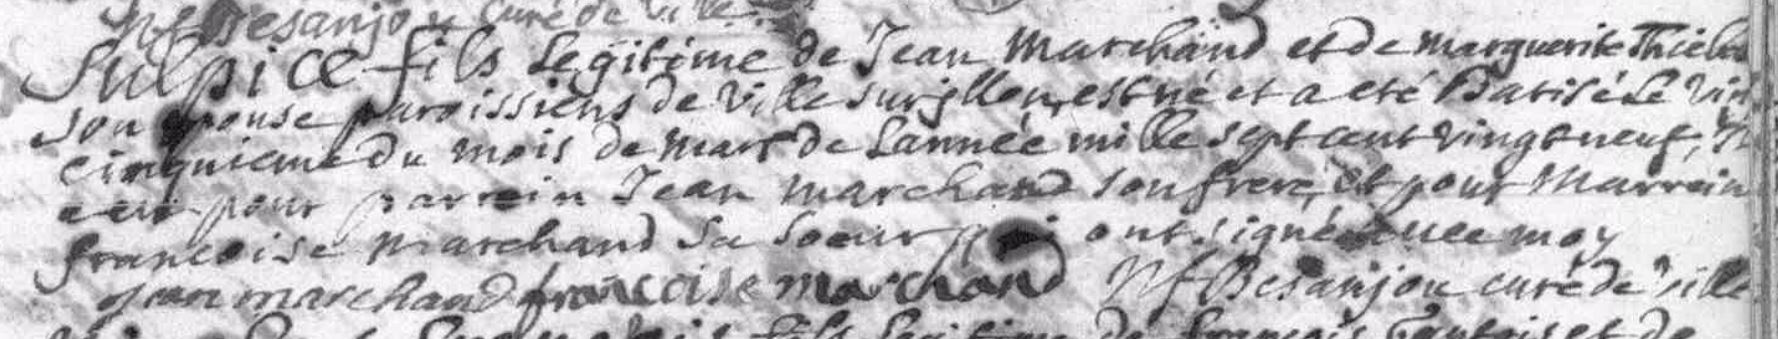 NF Besanjou Curé de Ville
Sulpice fils Legitime de Jean Marchand et de Marguerite
son epouse paroissiens de Ville sur jllon, est né et a eté Batisé Le
cinquieme du mois de Mars de Lannée mille sept cent vingt neuf,
eut pour parrein Jean Marchand son frere, et pour Marrein
francoise Marchand Sa soeur qui ont signé avec moy
Jean marchand francoise marchand NF Besanjou curé de ville
fils Legitime de francois et de